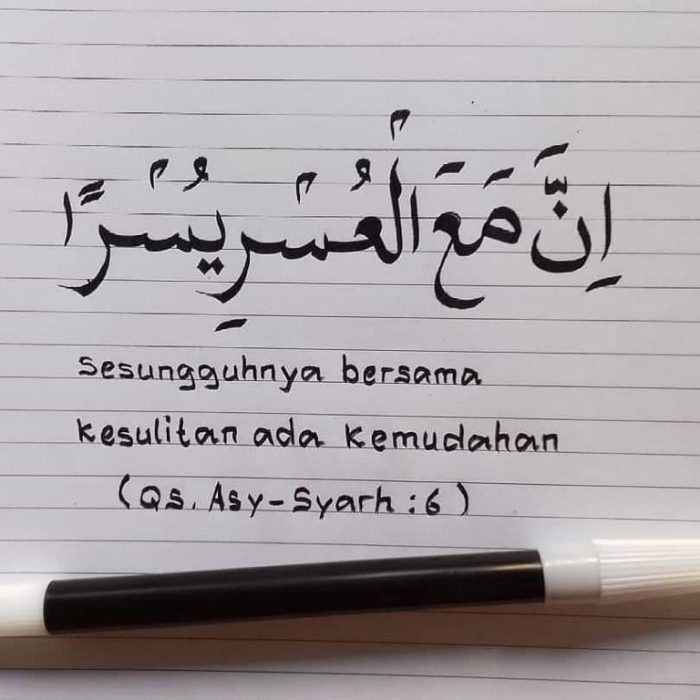 اِنَّ مَعَ الْعُسْرِ يُسْرًا
Sesungguhnya bersama
kesulitan ada kemudahan
(Qs. Asy-Syarh : 6)